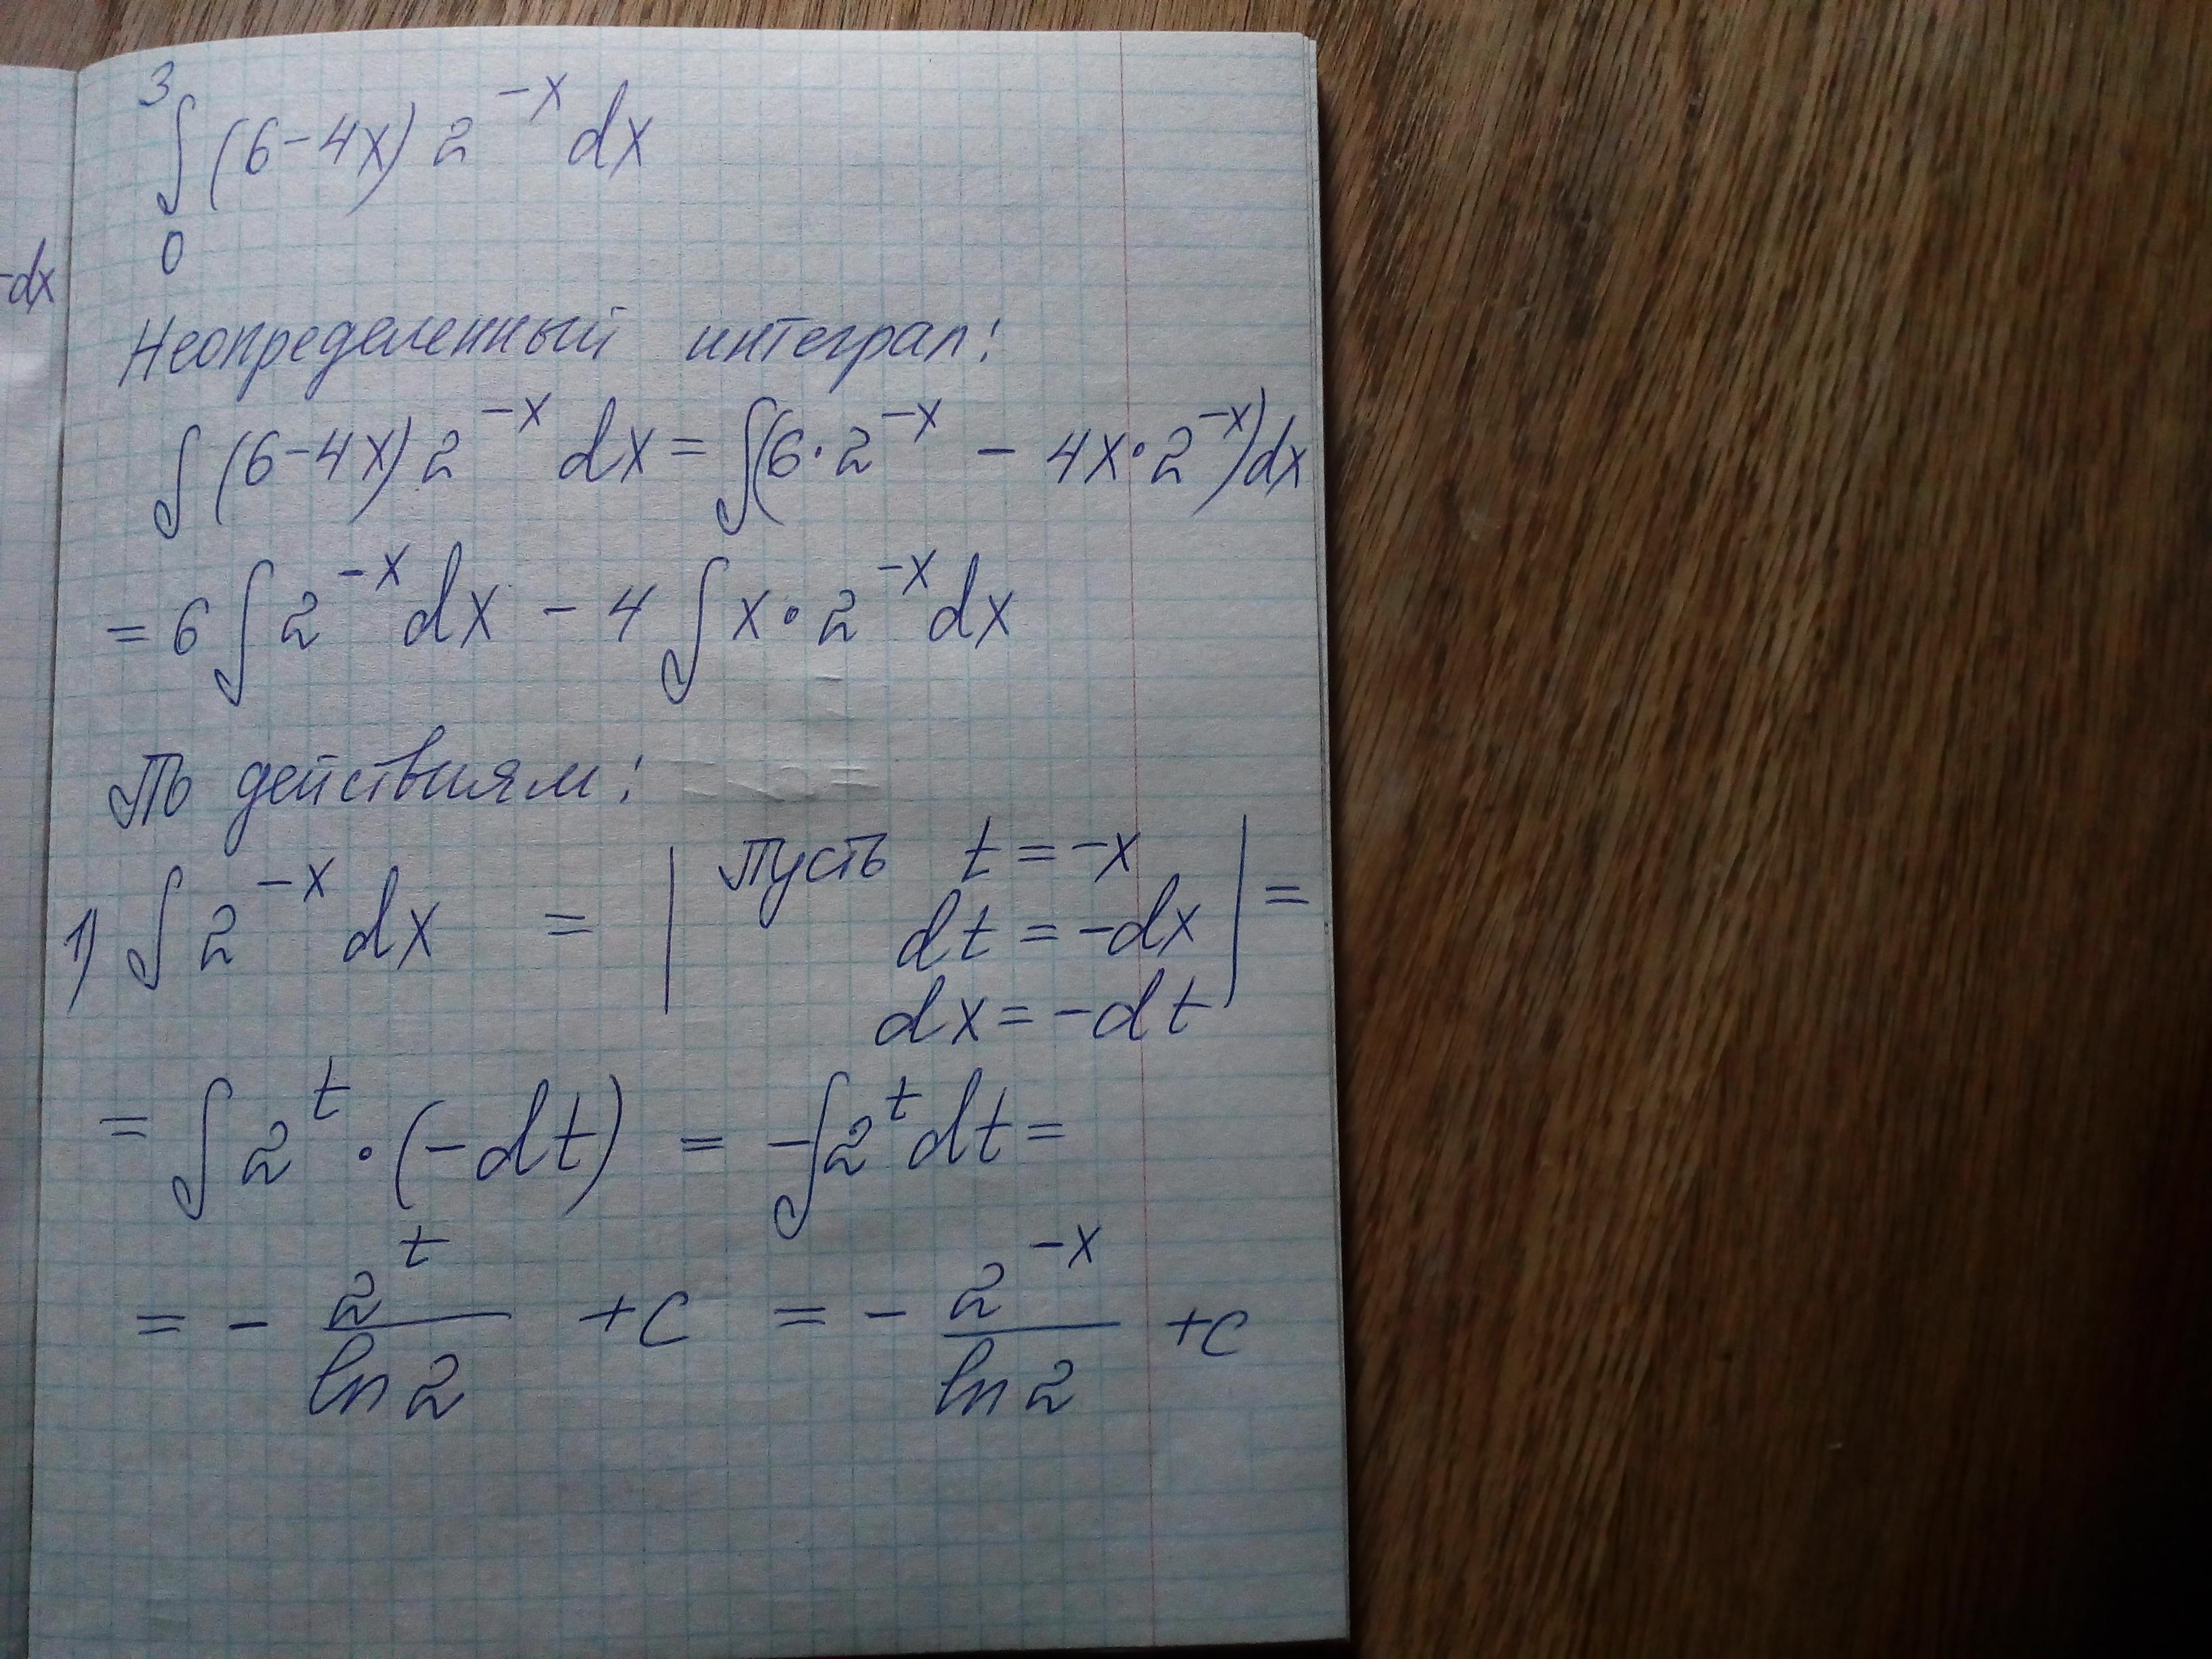 3
∫ (6-4x) 2^{-x} dx
0
-dx
Неопределенный интеграл:
∫ (6-4x) 2^{-x} dx = ∫(6·2^{-x} - 4x·2^{-x})dx
= 6 ∫ 2^{-x} dx - 4 ∫ x·2^{-x} dx
По действиям:
1) ∫ 2^{-x} dx = | пусть t = -x | =
dt = -dx
dx = -dt
= ∫ 2^t · (-dt) = -∫2^t dt =
= - 2^t / ln 2 + c = - 2^{-x} / ln 2 + c